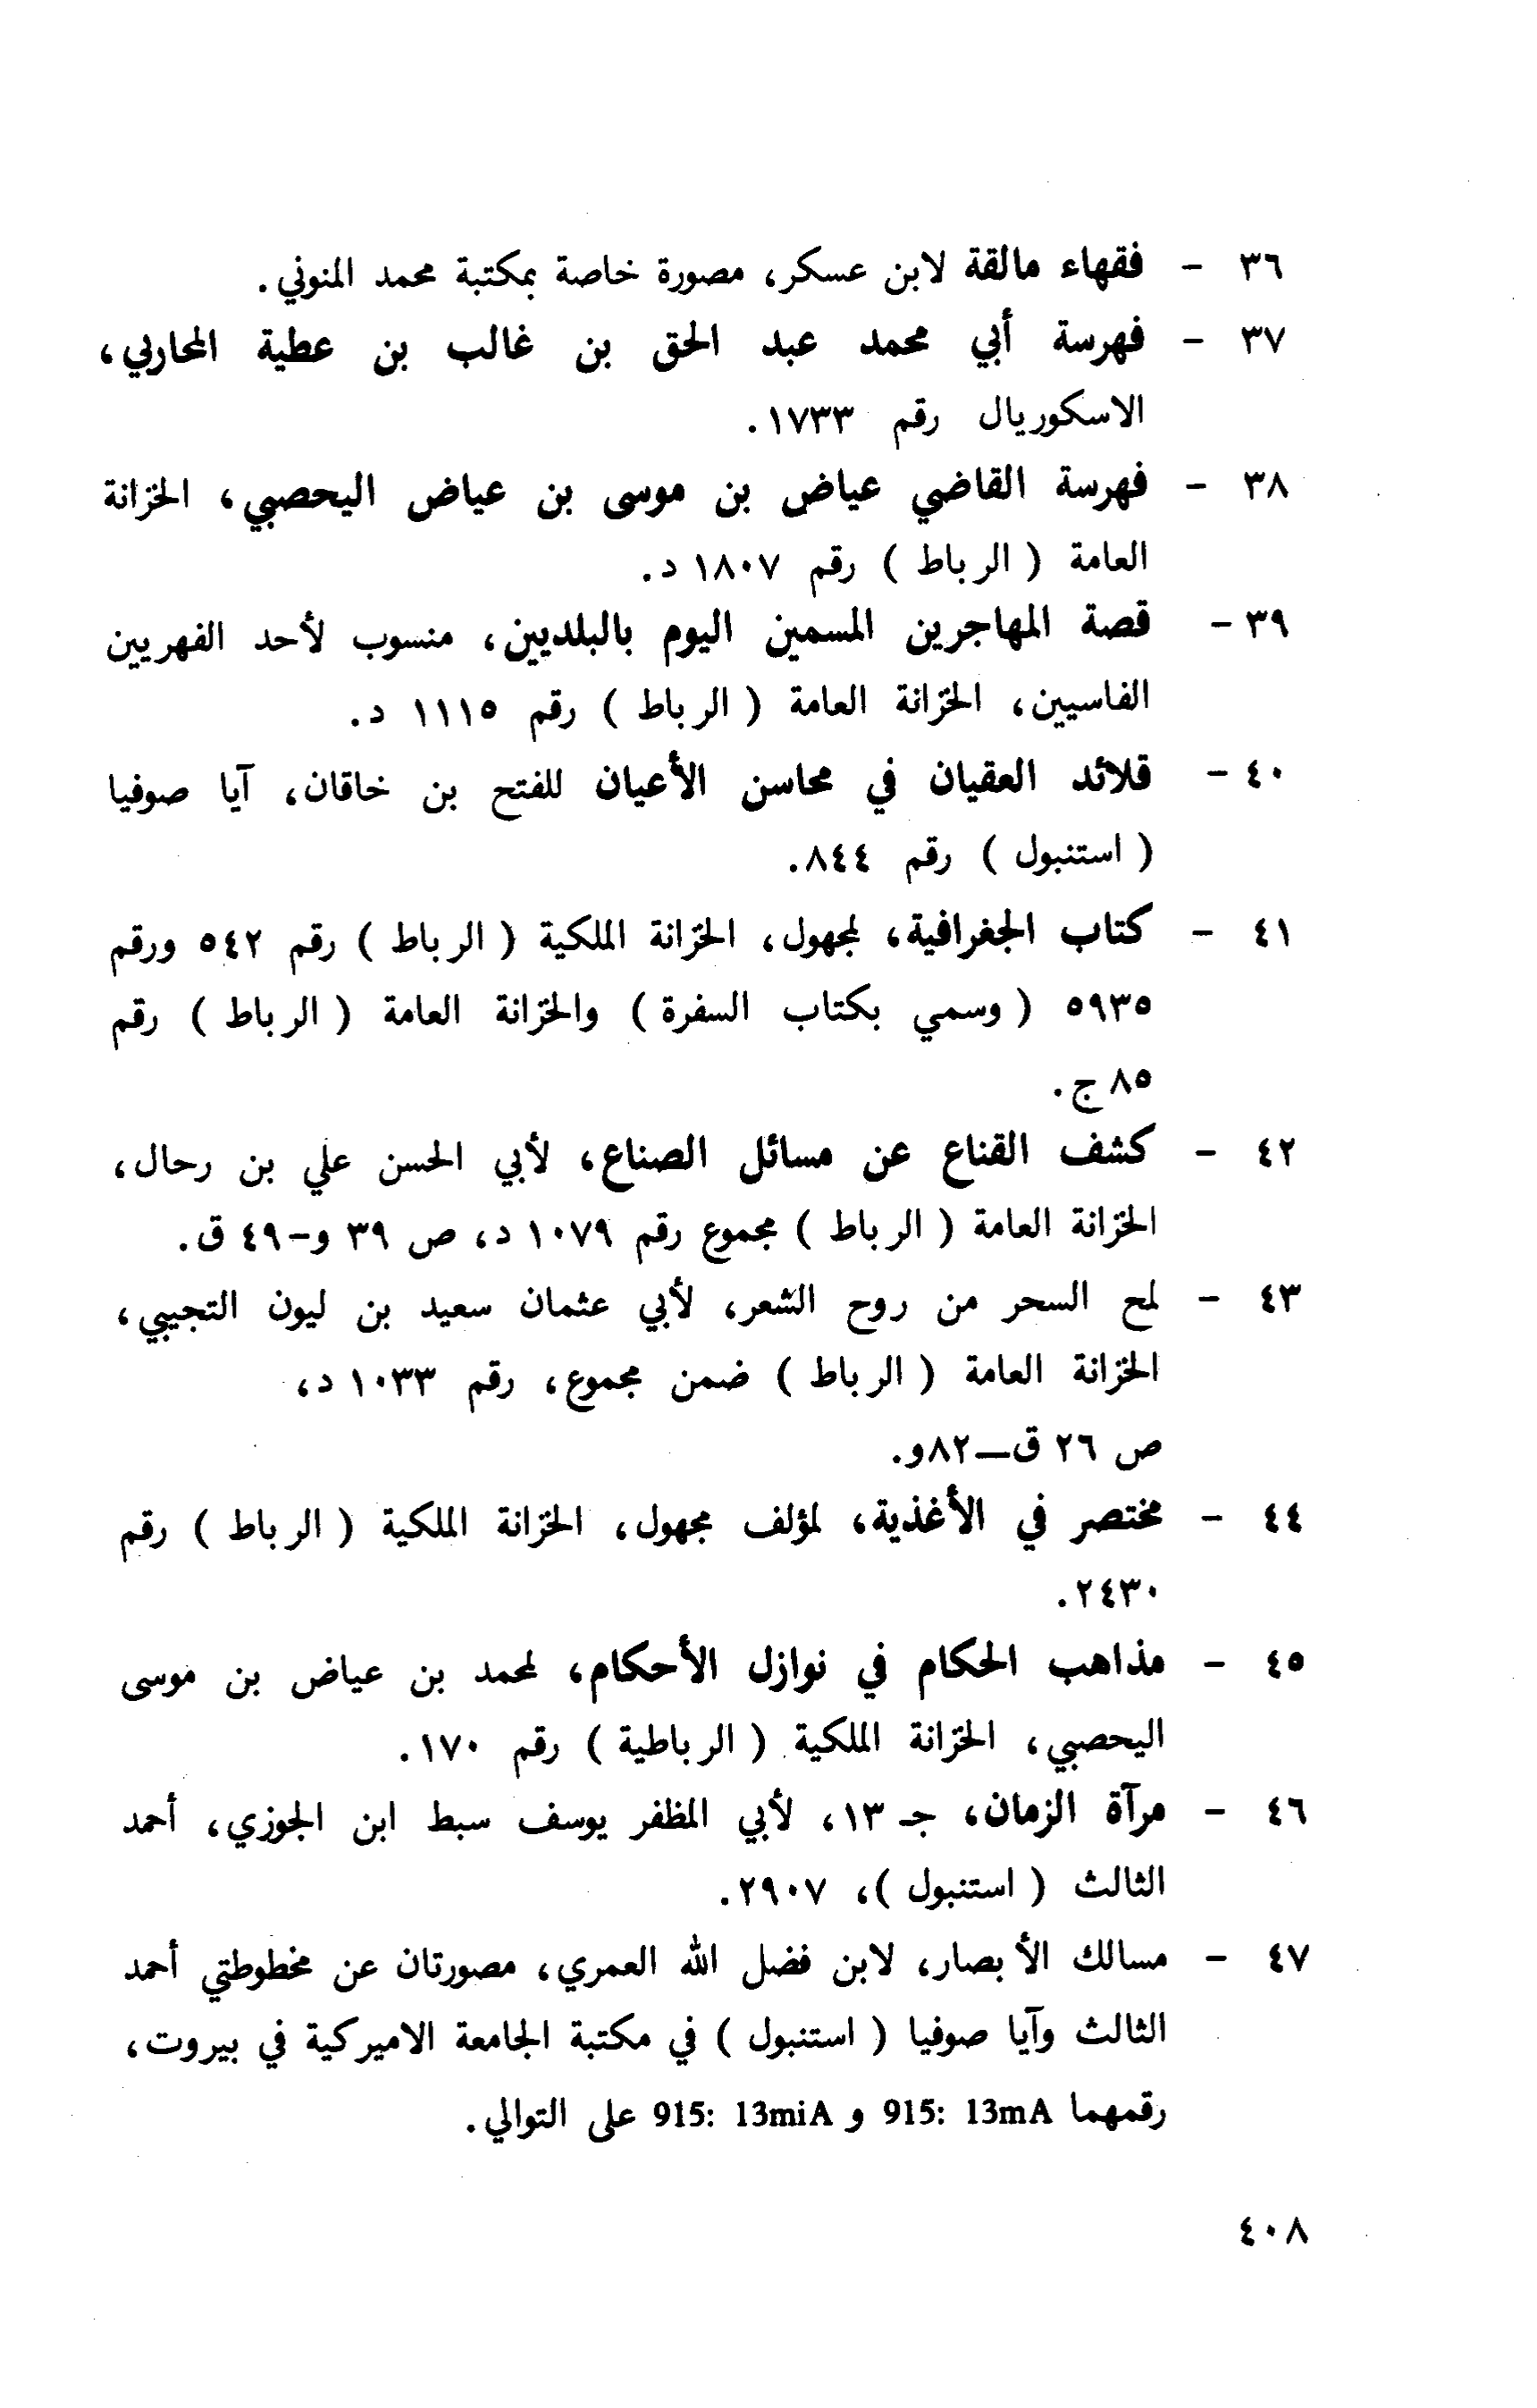 ٣٦ - فقهاء مالقة لابن عسكر، مصورة خاصة بمكتبة محمد المنوني.
٣٧ - فهرسة أبي محمد عبد الحق بن غالب بن عطية المحاربي،
الاسكوريال رقم ١٧٣٣.
٣٨ - فهرسة القاضي عياض بن موسى بن عياض اليحصبي، الخزانة
العامة ( الرباط ) رقم ١٨٠٧ د.
٣٩ - قصة المهاجرين المسمين اليوم بالبلديين، منسوب لأحد الفهريين
الفاسيين، الخزانة العامة ( الرباط ) رقم ١١١٥ د.
٤٠ - قلائد العقيان في محاسن الأعيان للفتح بن خاقان، آيا صوفيا
( استنبول ) رقم ٨٤٤.
٤١ - كتاب الجغرافية، لمجهول، الخزانة الملكية ( الرباط ) رقم ٥٤٢ ورقم
٥٩٣٥ ( وسمي بكتاب السفرة ) والخزانة العامة ( الرباط ) رقم
٨٥ ج.
٤٢ - كشف القناع عن مسائل الصناع، لأبي الحسن علي بن رحال،
الخزانة العامة ( الرباط ) مجموع رقم ١٠٧٩ د، ص ٣٩ و-٤٩ ق.
٤٣ - لمح السحر من روح الشعر، لأبي عثمان سعيد بن ليون التجيبي،
الخزانة العامة ( الرباط ) ضمن مجموع، رقم ١٠٣٣ د،
ص ٢٦ ق—٨٢و.
٤٤ - مختصر في الأغذية، لمؤلف مجهول، الخزانة الملكية ( الرباط ) رقم
٢٤٣٠.
٤٥ - مذاهب الحكام في نوازل الأحكام، لمحمد بن عياض بن موسى
اليحصبي، الخزانة الملكية ( الرباطية ) رقم ١٧٠.
٤٦ - مرآة الزمان، جـ ١٣، لأبي المظفر يوسف سبط ابن الجوزي، أحمد
الثالث ( استنبول )، ٢٩٠٧.
٤٧ - مسالك الأبصار، لابن فضل الله العمري، مصورتان عن مخطوطتي أحمد
الثالث وآيا صوفيا ( استنبول ) في مكتبة الجامعة الاميركية في بيروت،
رقمهما 915: 13mA و 915: 13miA على التوالي.
٤٠٨